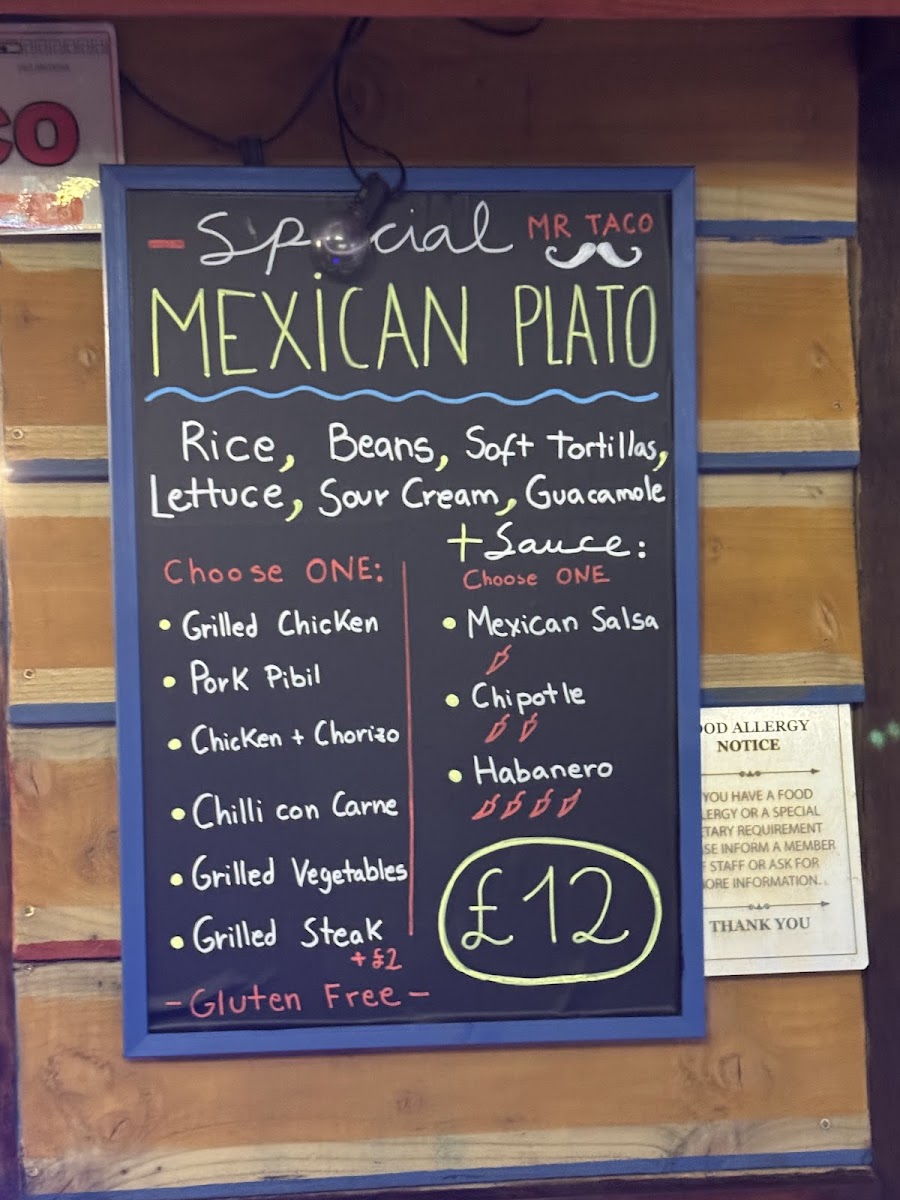 CO
- Special
MR TACO
MEXICAN PLATO
Rice, Beans, Soft Tortillas,
Lettuce, Sour Cream, Guacamole
+ Sauce:
Choose ONE:
• Grilled Chicken
• Pork Pibil
• Chicken + Chorizo
• Chilli con Carne
• Grilled Vegetables
• Grilled Steak
+ £2
- Gluten Free -
Choose ONE
• Mexican Salsa
• Chipotle
• Habanero
£12
OOD ALLERGY
NOTICE
YOU HAVE A FOOD
LERGY OR A SPECIAL
TARY REQUIREMENT
SE INFORM A MEMBER
F STAFF OR ASK FOR
ORE INFORMATION.
THANK YOU